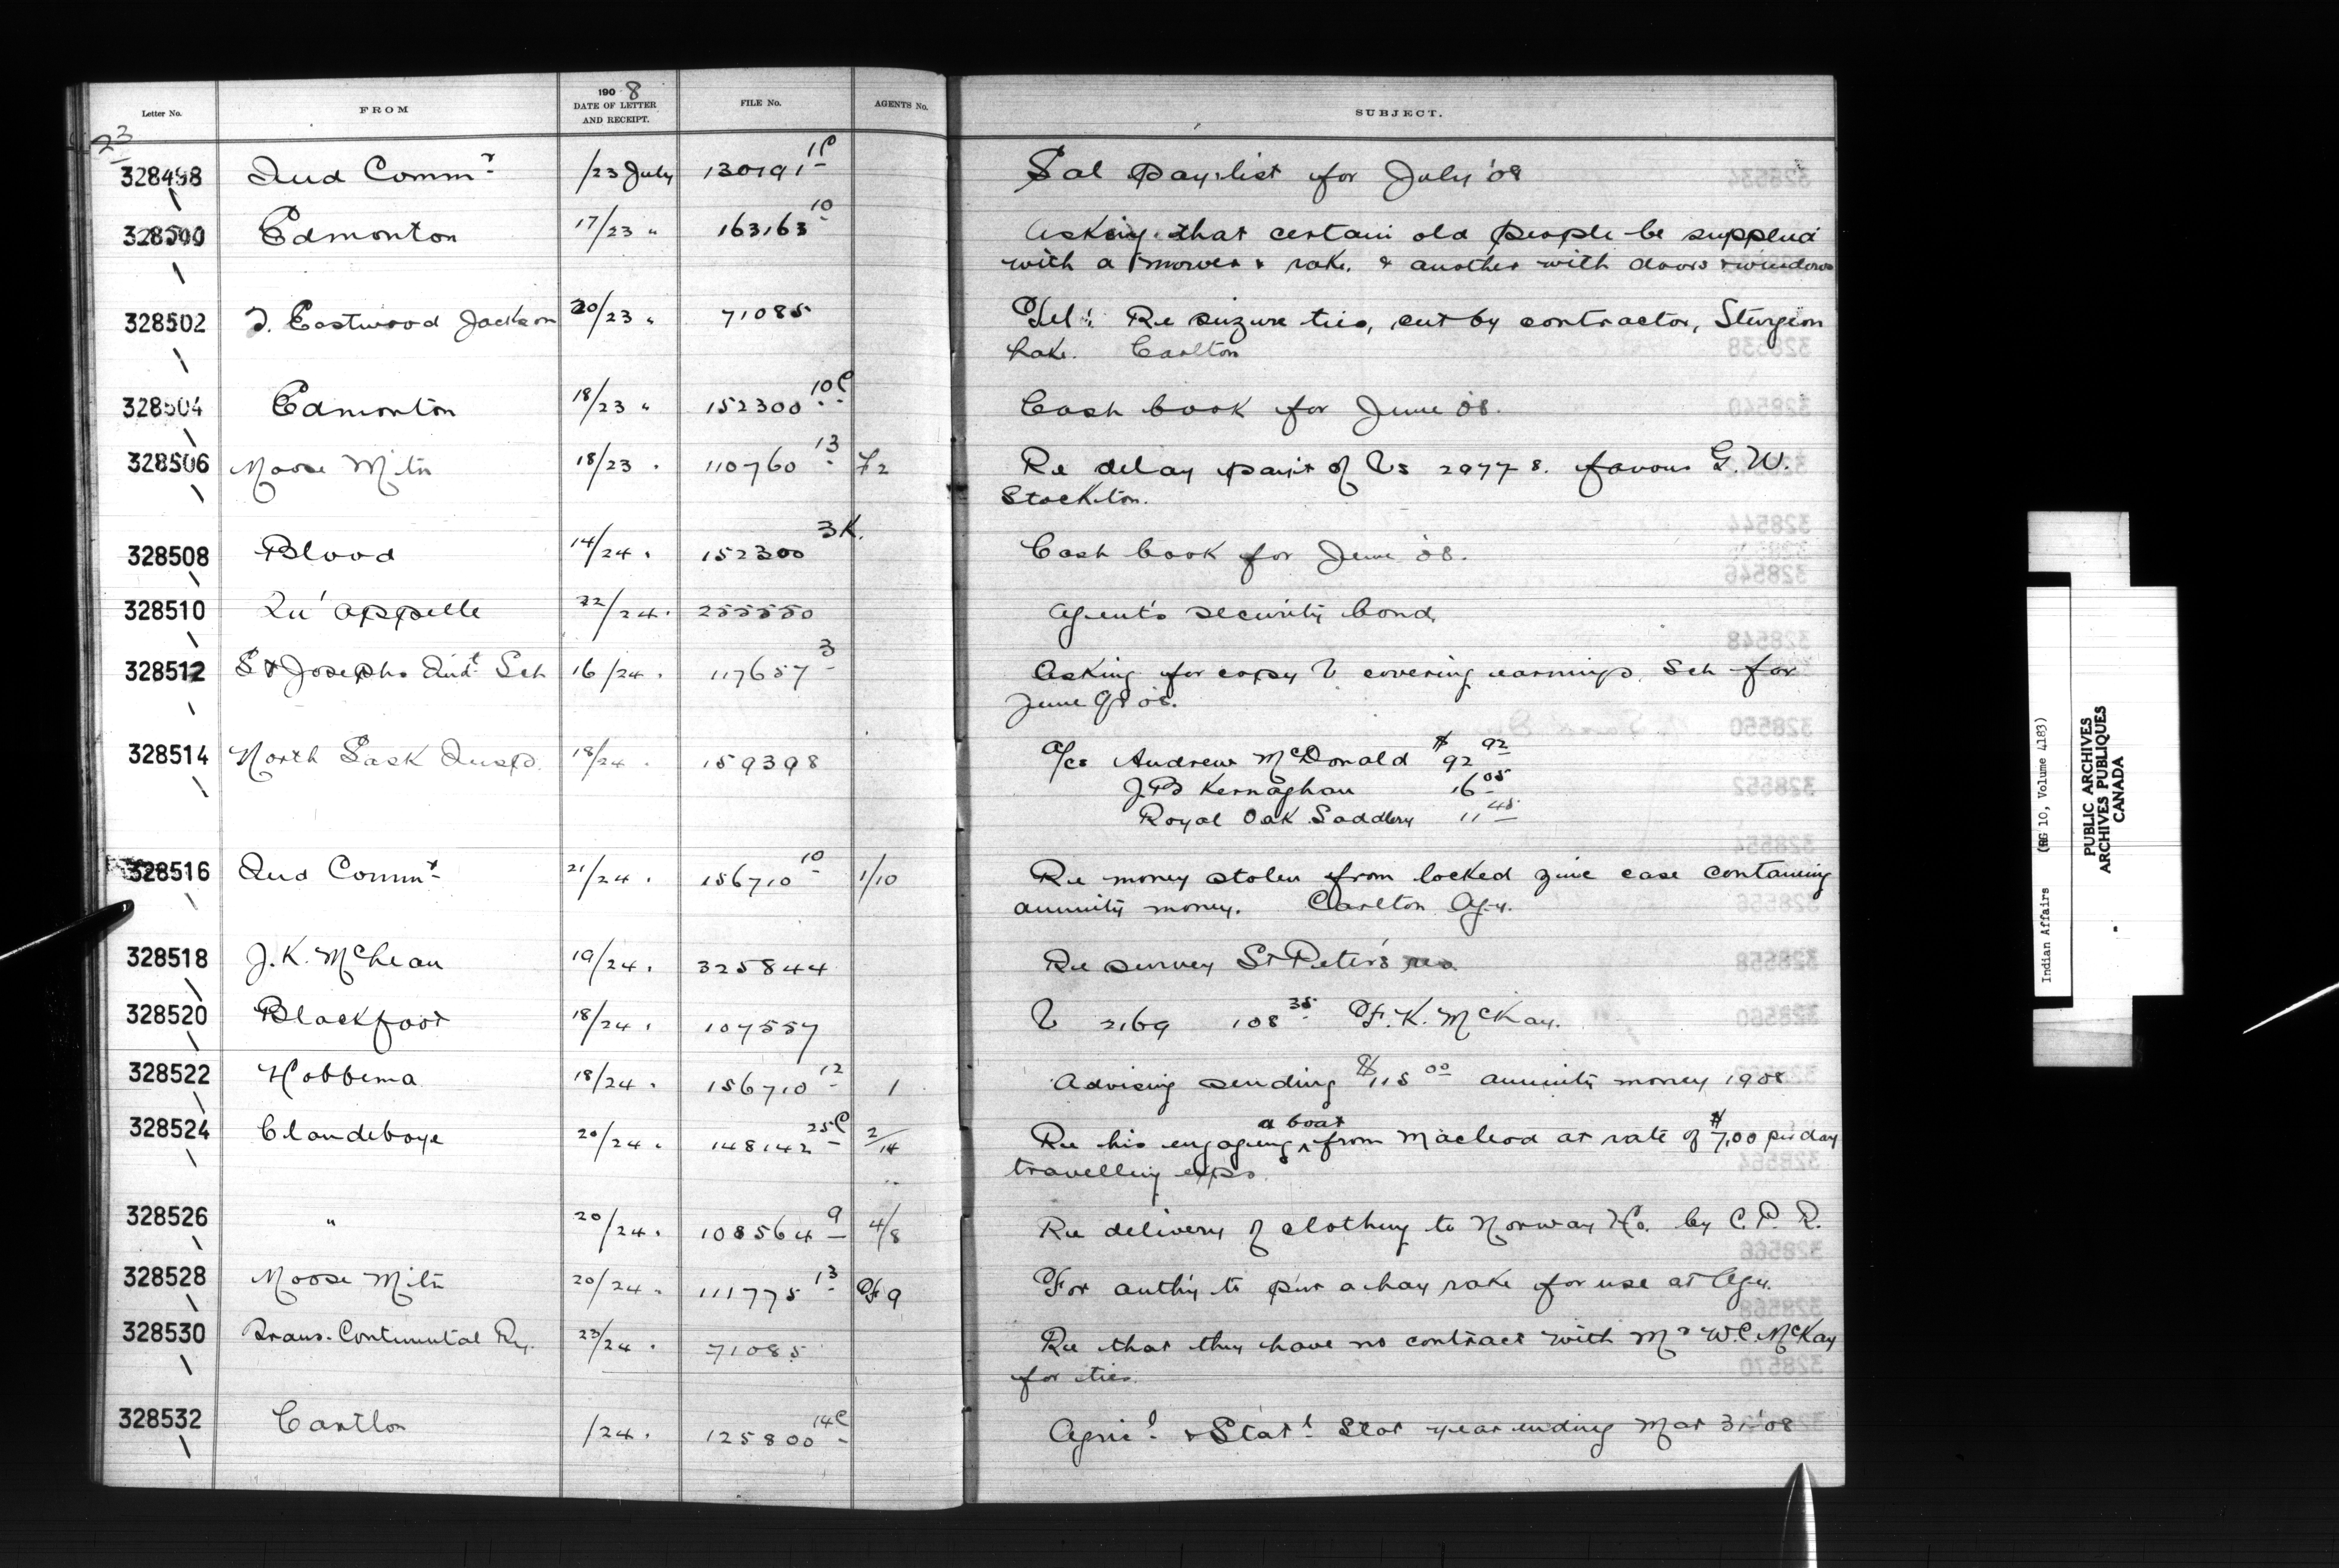 Letter No. FROM 1908 DATE OF LETTER AND RECEIPT. FILE No. AGENTS No. SUBJECT.
23
328498 Ind Commr /23 July 130191 1C Sal pay-list for July '08
328500 Edmonton 17/23 " 163163 10 Asking that certain old people be supplied
with a mower & rake. & another with doors & windows
328502 T. Eastwood Jackson 20/23 " 71085 Tel: Re seizure ties, cut by contractor, Sturgeon
Lake. Carlton
328504 Edmonton 18/23 " 152300 10C Cash book for June 08.
328506 Moose Mtn 18/23 . 110760 13 F2 Re delay paymt of Vs 2977-8. favour G. W.
Stockton.
328508 Blood 14/24 . 152300 3K. Cash book for June '08.
328510 Qu'appelle 22/24. 255550 Agent's security bond.
328512 St Josephs Indt Sch 16/24 . 117657 3 Asking for copy V covering earnings. Sch for
June Qr 08.
328514 North Sask Insp. 18/24 . 159398 a/cs Andrew McDonald $92 92
J B Kernaghan 16 05
Royal Oak Saddlery 11 45
328516 Ind Commr 21/24 . 156710 10 1/10 Re money stolen from locked zinc case containing
annuity money. Carlton Agy.
328518 J. K. McLean 19/24 . 325844 Re survey St Peter's res
328520 Blackfoot 18/24 . 107557 V 2169 108 35 F. K. McKay.
328522 Hobbema 18/24 . 156710 12 1 Advising sending $115 00 annuity money 1908
328524 Clandeboye 20/24 . 148142 25C 2/14 Re his engaging a boat from Macleod at rate of $7.00 per day
travelling exps.
328526 " 20/24 . 108564 9 4/8 Re delivery of clothing to Norway Ho. by C. P. R.
328528 Moose Mtn 20/24 . 111775 13 F9 For authy to pur a hay rake for use at Agy.
328530 Trans. Continental Ry. 23/24 . 71085 Re that they have no contract with Mr W C McKay
for ties.
328532 Carlton /24 . 125800 14C Agricl & Statl Stat year ending Mar 31 '08
Indian Affairs (RG 10, Volume 4183)
PUBLIC ARCHIVES
ARCHIVES PUBLIQUES
CANADA